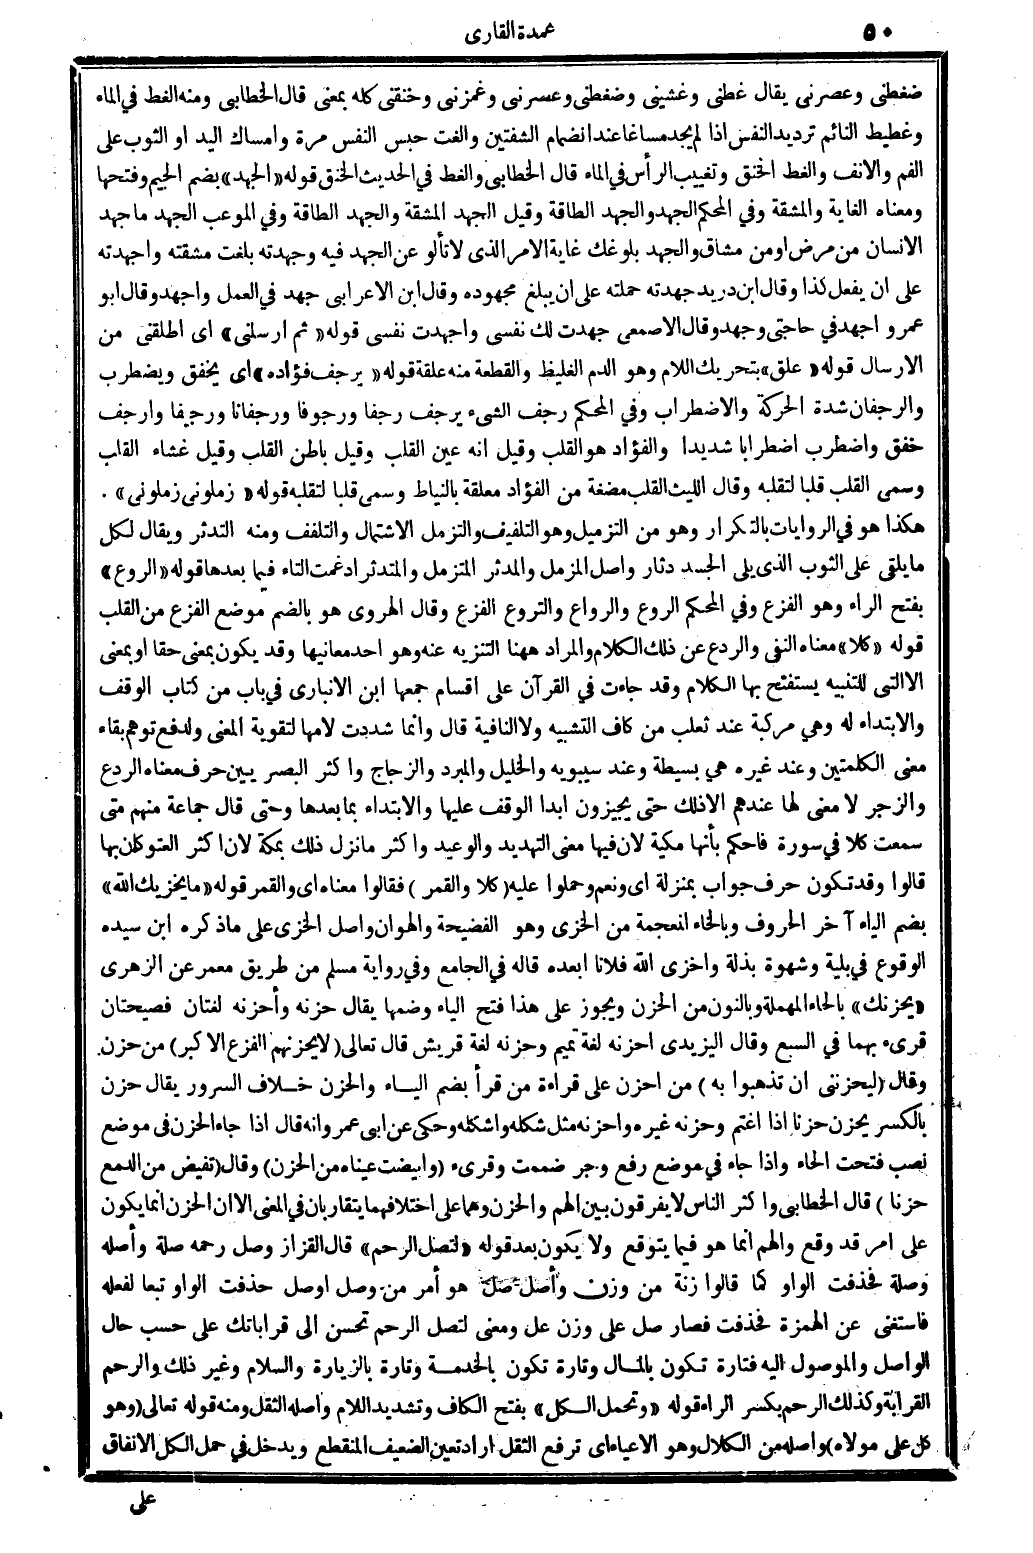 ٥٠
عمدة القارى
ضغطنى وعصرنى يقال غطنى وغشينى وضغطنى وعسرنى وغمزنى وخنقنى كله بمعنى قال الخطابى ومنه الغط في الماء
وغطيط النائم ترديد النفس اذا لم يجد مساغا عند انضمام الشفتين والغت حبس النفس مرة وامساك اليد او الثوب على
الفم والانف والغط الخنق وتغييب الرأس في الماء قال الخطابى والغط في الحديث الخنق قوله «الجهد» بضم الجيم وفتحها
ومعناه الغاية والمشقة وفي المحكم الجهد والجهد الطاقة وقيل الجهد المشقة والجهد الطاقة وفي الموعب الجهد ما جهد
الانسان من مرض او من مشاق والجهد بلوغك غاية الامر الذى لا تألو عن الجهد فيه وجهدته بلغت مشقته واجهدته
على ان يفعل كذا وقال ابن دريد جهدته حملته على ان يبلغ مجهوده وقال ابن الاعرابى جهد في العمل واجهد وقال ابو
عمرو اجهد في حاجتى وجهد وقال الاصمعى جهدت لك نفسى واجهدت نفسى قوله «ثم ارسلنى» اى اطلقنى من
الارسال قوله «علق» بتحريك اللام وهو الدم الغليظ والقطعة منه علقة قوله «يرجف فؤاده» اى يخفق ويضطرب
والرجفان شدة الحركة والاضطراب وفي المحكم رجف الشىء يرجف رجفا ورجوفا ورجفانا ورجيفا وارجف
خفق واضطرب اضطرابا شديدا والفؤاد هو القلب وقيل انه عين القلب وقيل باطن القلب وقيل غشاء القلب
وسمى القلب قلبا لتقلبه وقال الليث القلب مضغة من الفؤاد معلقة بالنياط وسمى قلبا لتقلبه قوله «زملونى زملونى» .
هكذا هو في الروايات بالتكرار وهو من التزميل وهو التلفيف والتزمل الاشتمال والتلفف ومنه التدثر ويقال لكل
ما يلقى على الثوب الذى يلى الجسد دثار واصل المزمل والمدثر المتزمل والمتدثر ادغمت التاء فيما بعدها قوله «الروع»
بفتح الراء وهو الفزع وفي المحكم الروع والرواع والتروع الفزع وقال الهروى هو بالضم موضع الفزع من القلب
قوله «كلا» معناه النفى والردع عن ذلك الكلام والمراد ههنا التنزيه عنه وهو احد معانيها وقد يكون بمعنى حقا او بمعنى
الا التى للتنبيه يستفتح بها الكلام وقد جاءت في القرآن على اقسام جمعها ابن الانبارى في باب من كتاب الوقف
والابتداء له وهي مركبة عند ثعلب من كاف التشبيه ولا النافية قال وانما شددت لامها لتقوية المعنى ولدفع توهم بقاء
معنى الكلمتين وعند غيره هي بسيطة وعند سيبويه والخليل والمبرد والزجاج واكثر البصريين حرف معناه الردع
والزجر لا معنى لها عندهم الا ذلك حتى يجيزون ابدا الوقف عليها والابتداء بما بعدها وحتى قال جماعة منهم متى
سمعت كلا في سورة فاحكم بأنها مكية لان فيها معنى التهديد والوعيد واكثر ما نزل ذلك بمكة لان اكثر العتو كان بها
قالوا وقد تكون حرف جواب بمنزلة اى ونعم وحملوا عليه (كلا والقمر) فقالوا معناه اى والقمر قوله «ما يخزيك الله»
بضم الياء آخر الحروف وبالخاء المعجمة من الخزى وهو الفضيحة والهوان واصل الخزى على ما ذكره ابن سيده
الوقوع في بلية وشهوة بذلة واخزى الله فلانا ابعده قاله في الجامع وفي رواية مسلم من طريق معمر عن الزهرى
«يحزنك» بالحاء المهملة وبالنون من الحزن ويجوز على هذا فتح الياء وضمها يقال حزنه وأحزنه لغتان فصيحتان
قرىء بهما في السبع وقال اليزيدى احزنه لغة تميم وحزنه لغة قريش قال تعالى (لا يحزنهم الفزع الاكبر) من حزن
وقال (ليحزننى ان تذهبوا به) من احزن على قراءة من قرأ بضم اليـاء والحزن خـلاف السرور يقال حزن
بالكسر يحزن حزنا اذا اغتم وحزنه غيره واحزنه مثل شكله واشكله وحكى عن ابى عمرو انه قال اذا جاء الحزن فى موضع
نصب فتحت الحاء واذا جاء في موضع رفع وجر ضممت وقرىء (وابيضت عيناه من الحزن) وقال (تفيض من الدمع
حزنا) قال الخطابى واكثر الناس لا يفرقون بين الهم والحزن وهما على اختلافهما يتقاربان في المعنى الا ان الحزن انما يكون
على امر قد وقع والهم انما هو فيما يتوقع ولا يكون بعد قوله «لتصل الرحم» قال القزاز وصل رحمه صلة وأصله
وصلة فحذفت الواو كما قالوا زنة من وزن وأصل صل هو أمر من وصل اوصل حذفت الواو تبعا لفعله
فاستغنى عن الهمزة فحذفت فصار صل على وزن عل ومعنى لتصل الرحم تحسن الى قراباتك على حسب حال
الواصل والموصول اليه فتارة تكون بالمـال وتارة تكون بالخدمـة وتارة بالزيارة والسلام وغير ذلك والرحم
القرابة وكذلك الرحم بكسر الراء قوله «وتحمل الكل» بفتح الكاف وتشديد اللام واصله الثقل ومنه قوله تعالى (وهو
كل على مولاه) واصله من الكلال وهو الاعياء اى ترفع الثقل اراد تعين الضعيف المنقطع ويدخل في حمل الكل الانفاق
على